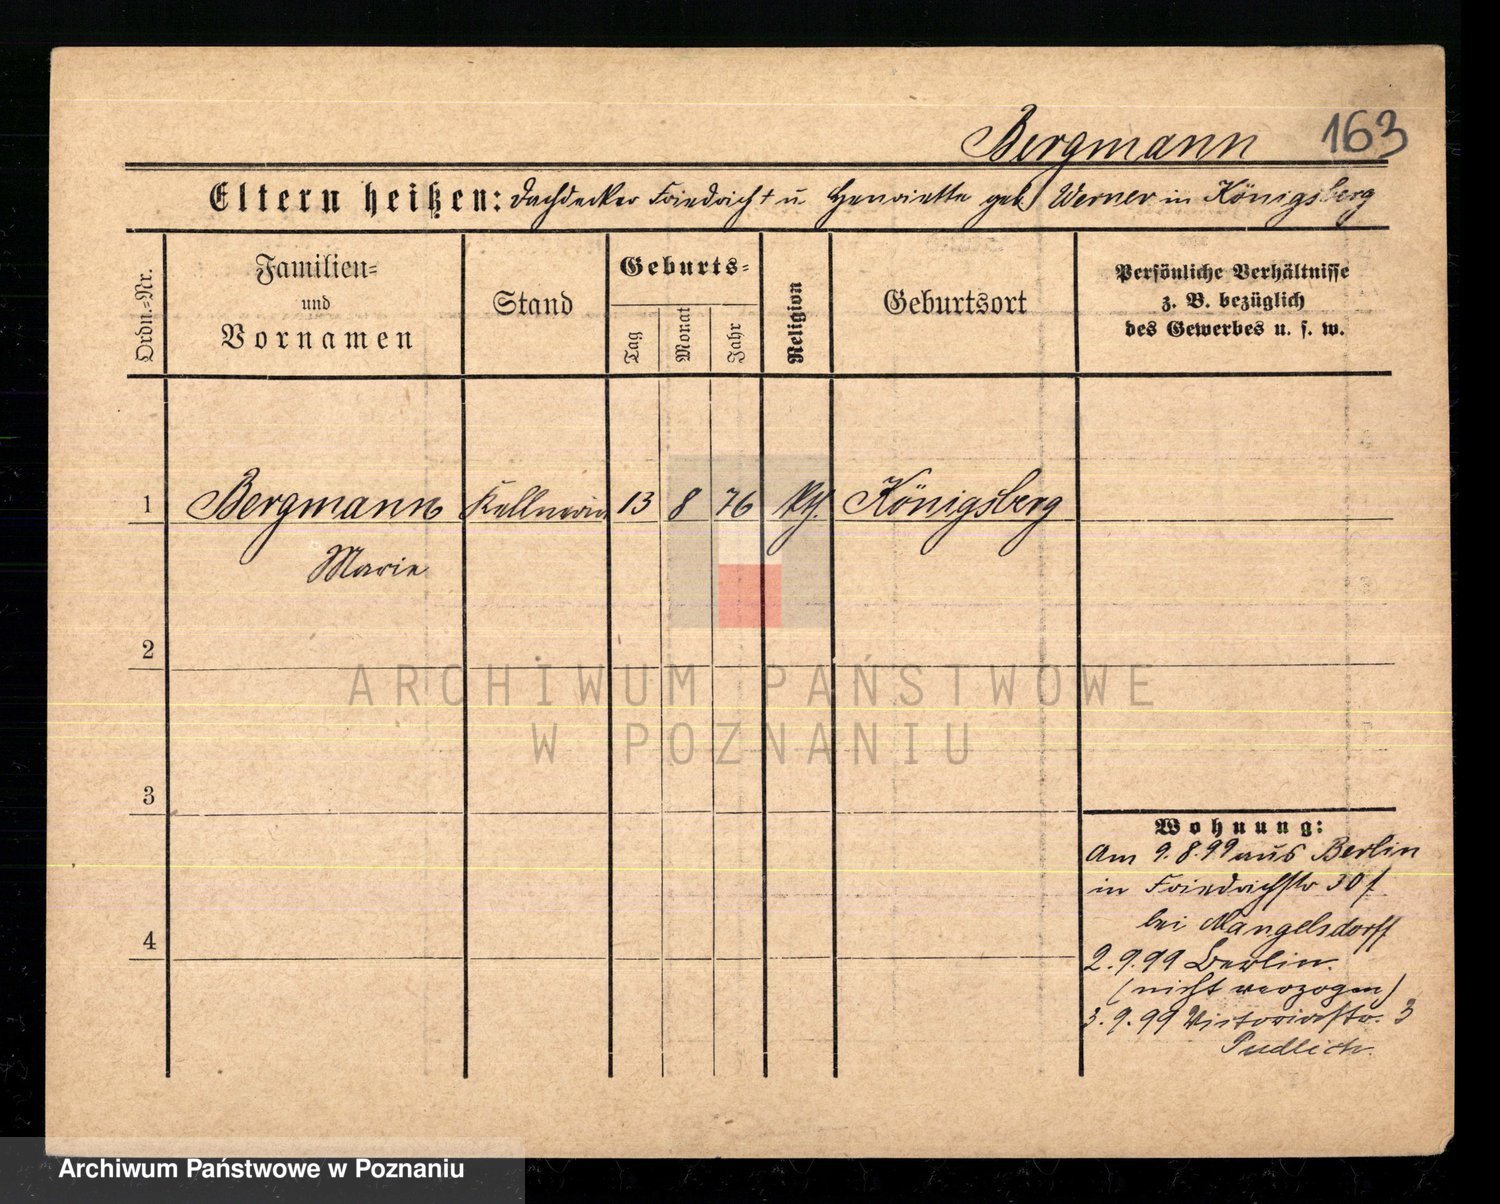 Bergmann 163
Eltern heißen: Dachdecker Friedrich † u Henriette geb Werner in Königsberg
Ordn.-Nr.
Familien-
und
Vornamen
Stand
Geburts-
Tag
Monat
Jahr
Religion
Geburtsort
Persönliche Verhältnisse
z. B. bezüglich
des Gewerbes u. s. w.
1 Bergmann Kellnerin 13 8 76 Königsberg
Marie
2
3
4
ARCHIWUM PAŃSTWOWE
W POZNANIU
Wohnung:
Am 9.8.99 aus Berlin
in Friedrichstr 30 I
bei Mangelsdorff
2.9.99 Berlin.
(nicht verzogen)
3.9.99 Victoriastr. 3
Pudlich.
Archiwum Państwowe w Poznaniu